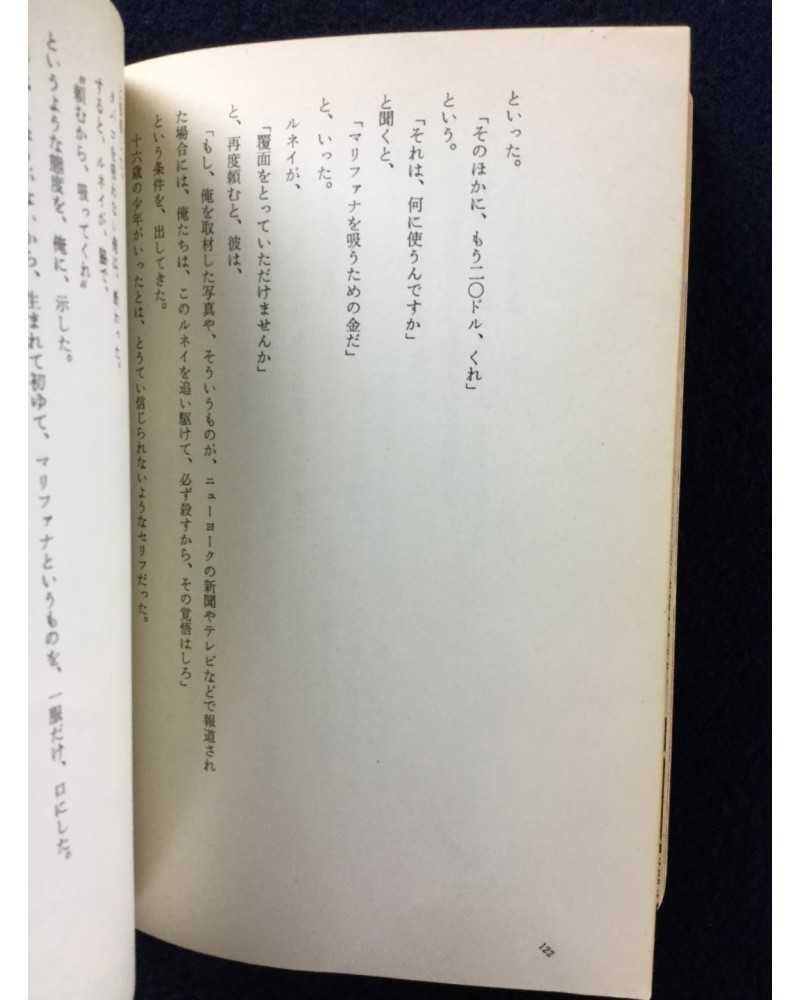 といった。
「そのほかに、もう二〇ドル、くれ」
という。
「それは、何に使うんですか」
と聞くと、
「マリファナを吸うための金だ」
と、いった。
ルネイが、
「覆面をとっていただけませんか」
と、再度頼むと、彼は、
「もし、俺を取材した写真や、そういうものが、ニューヨークの新聞やテレビなどで報道され
た場合には、俺たちは、このルネイを追い駆けて、必ず殺すから、その覚悟はしろ」
という条件を、出してきた。
十六歳の少年がいったとは、とうてい信じられないようなセリフだった。
すると、ルネイが、脇で、
“頼むから、吸ってくれ”
というような態度を、俺に、示した。
から、生まれて初ゆて、マリファナというものを、一服だけ、口にした。
122